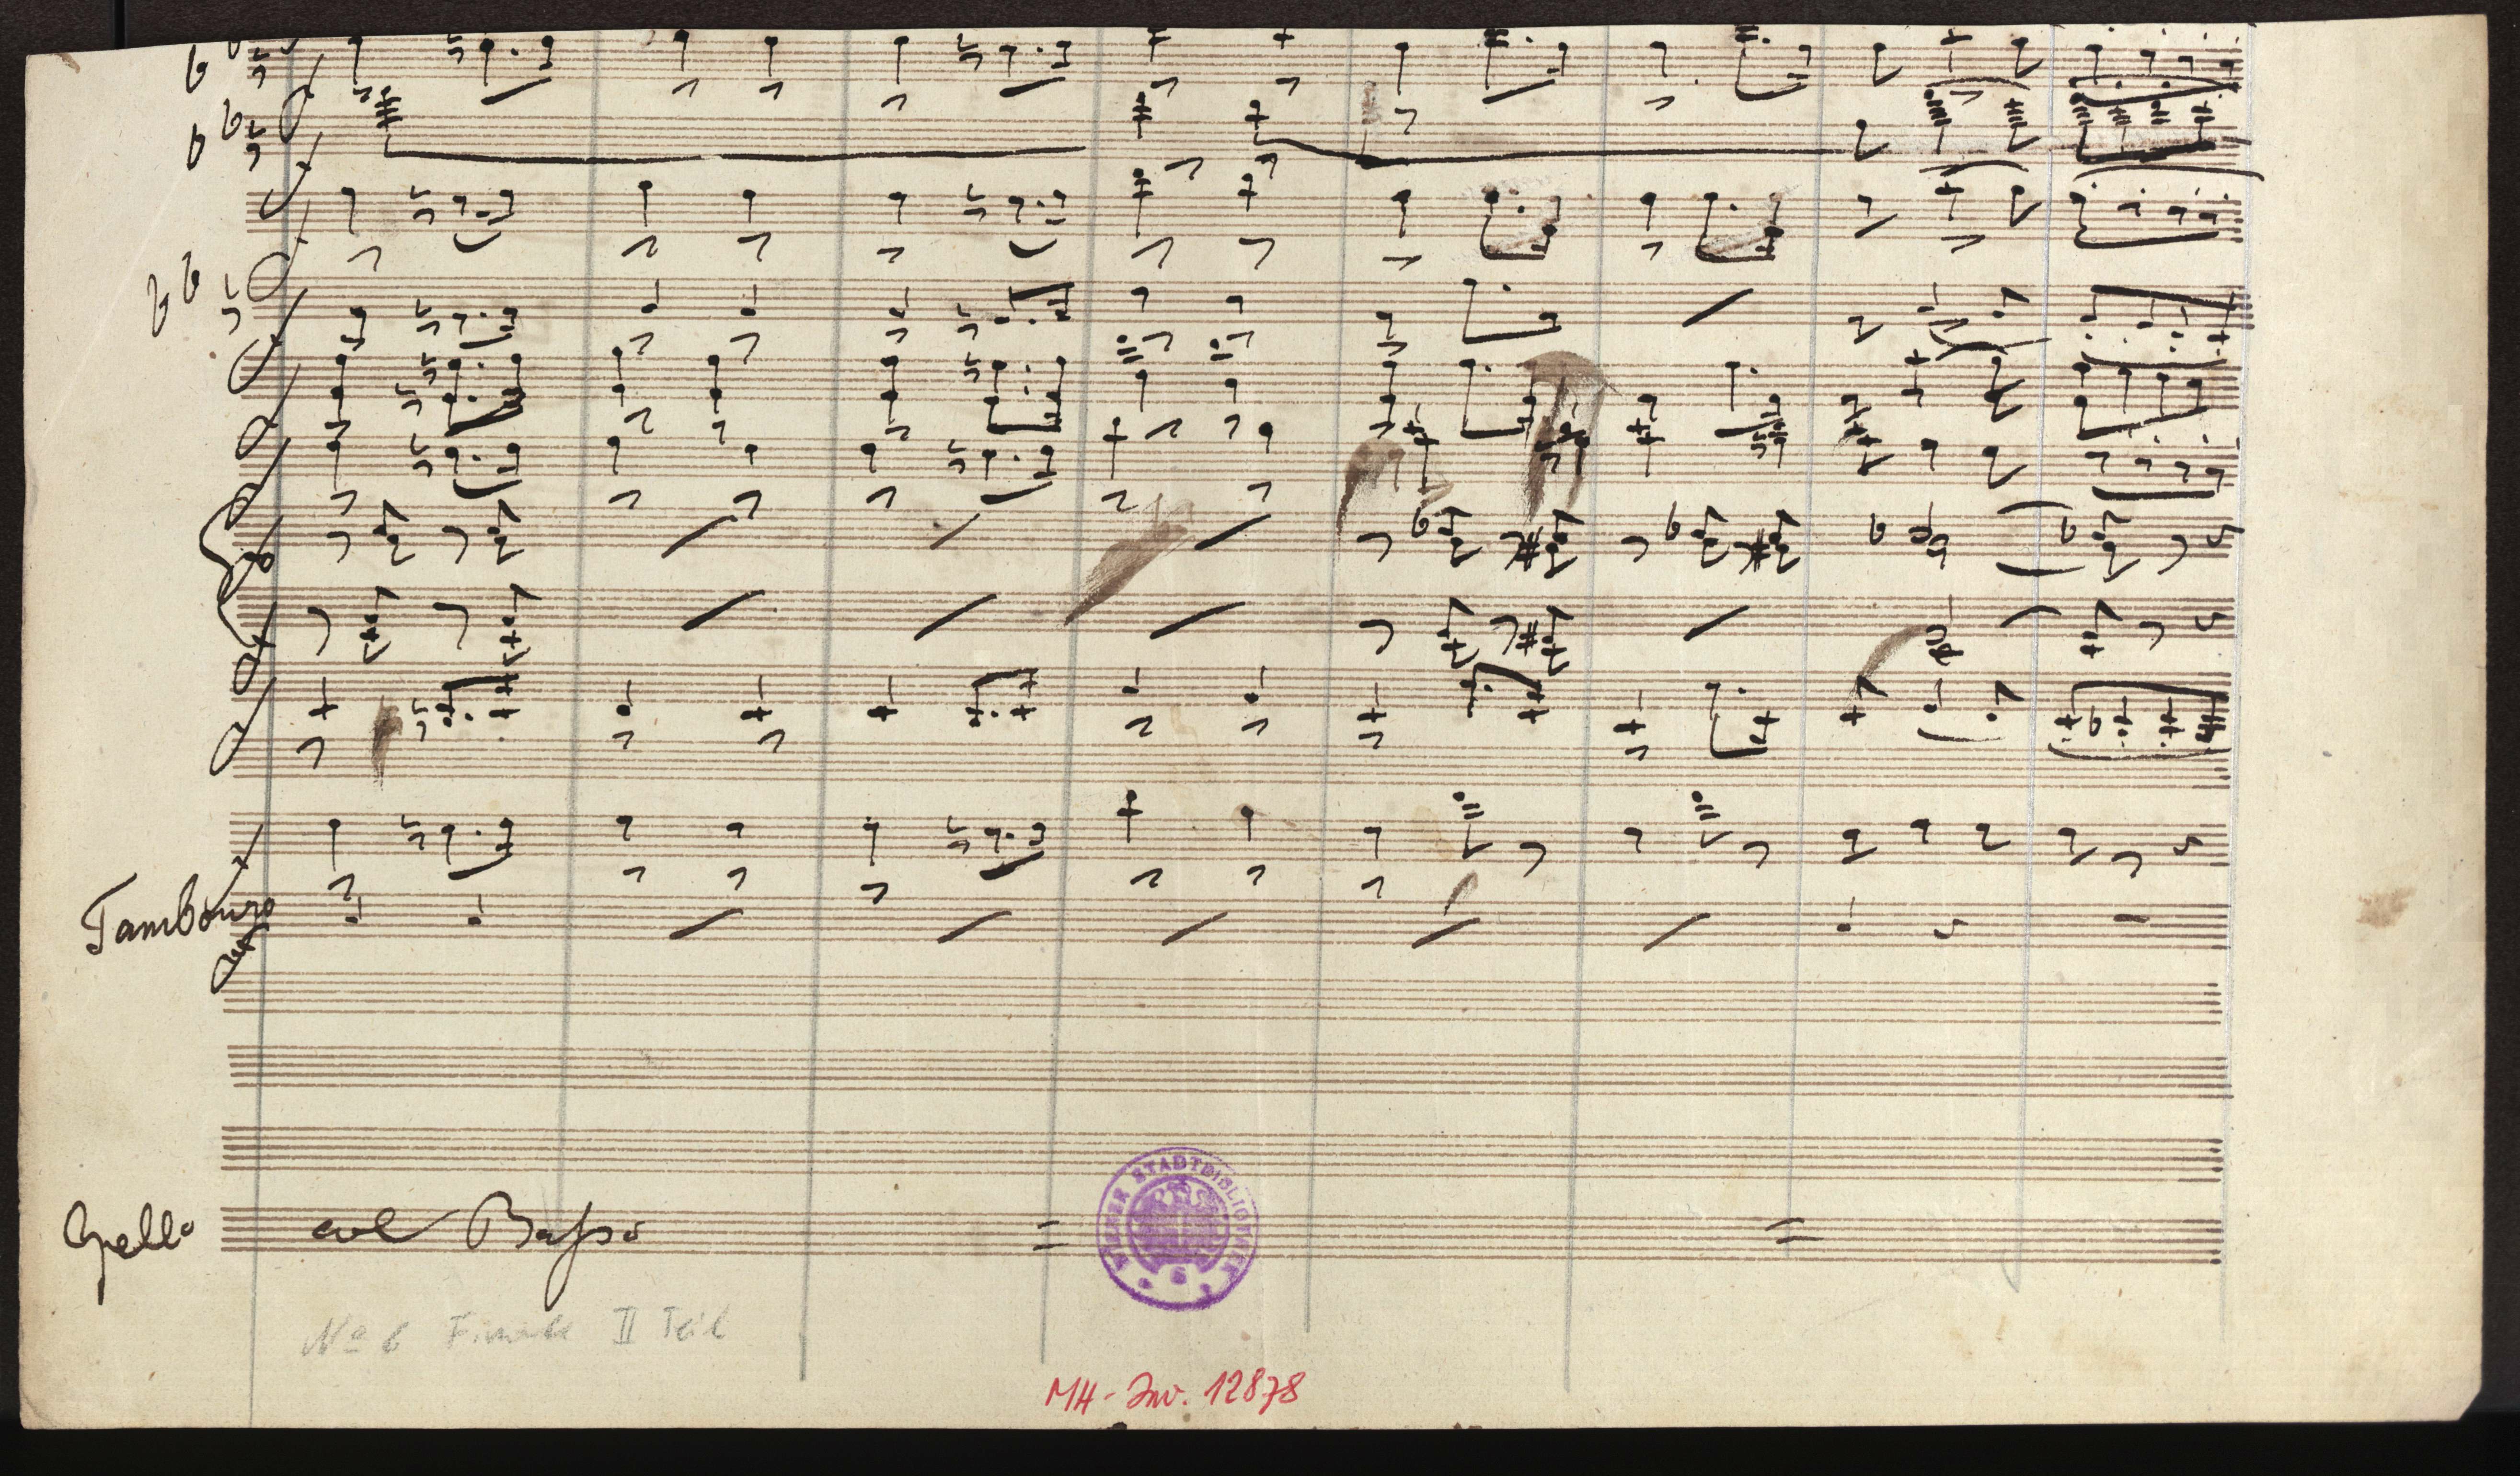 Tambouro
Cello
col Basso
WIENER STADTBIBLIOTHEK
No 6 Finale II Teil
MH - Inv. 12878